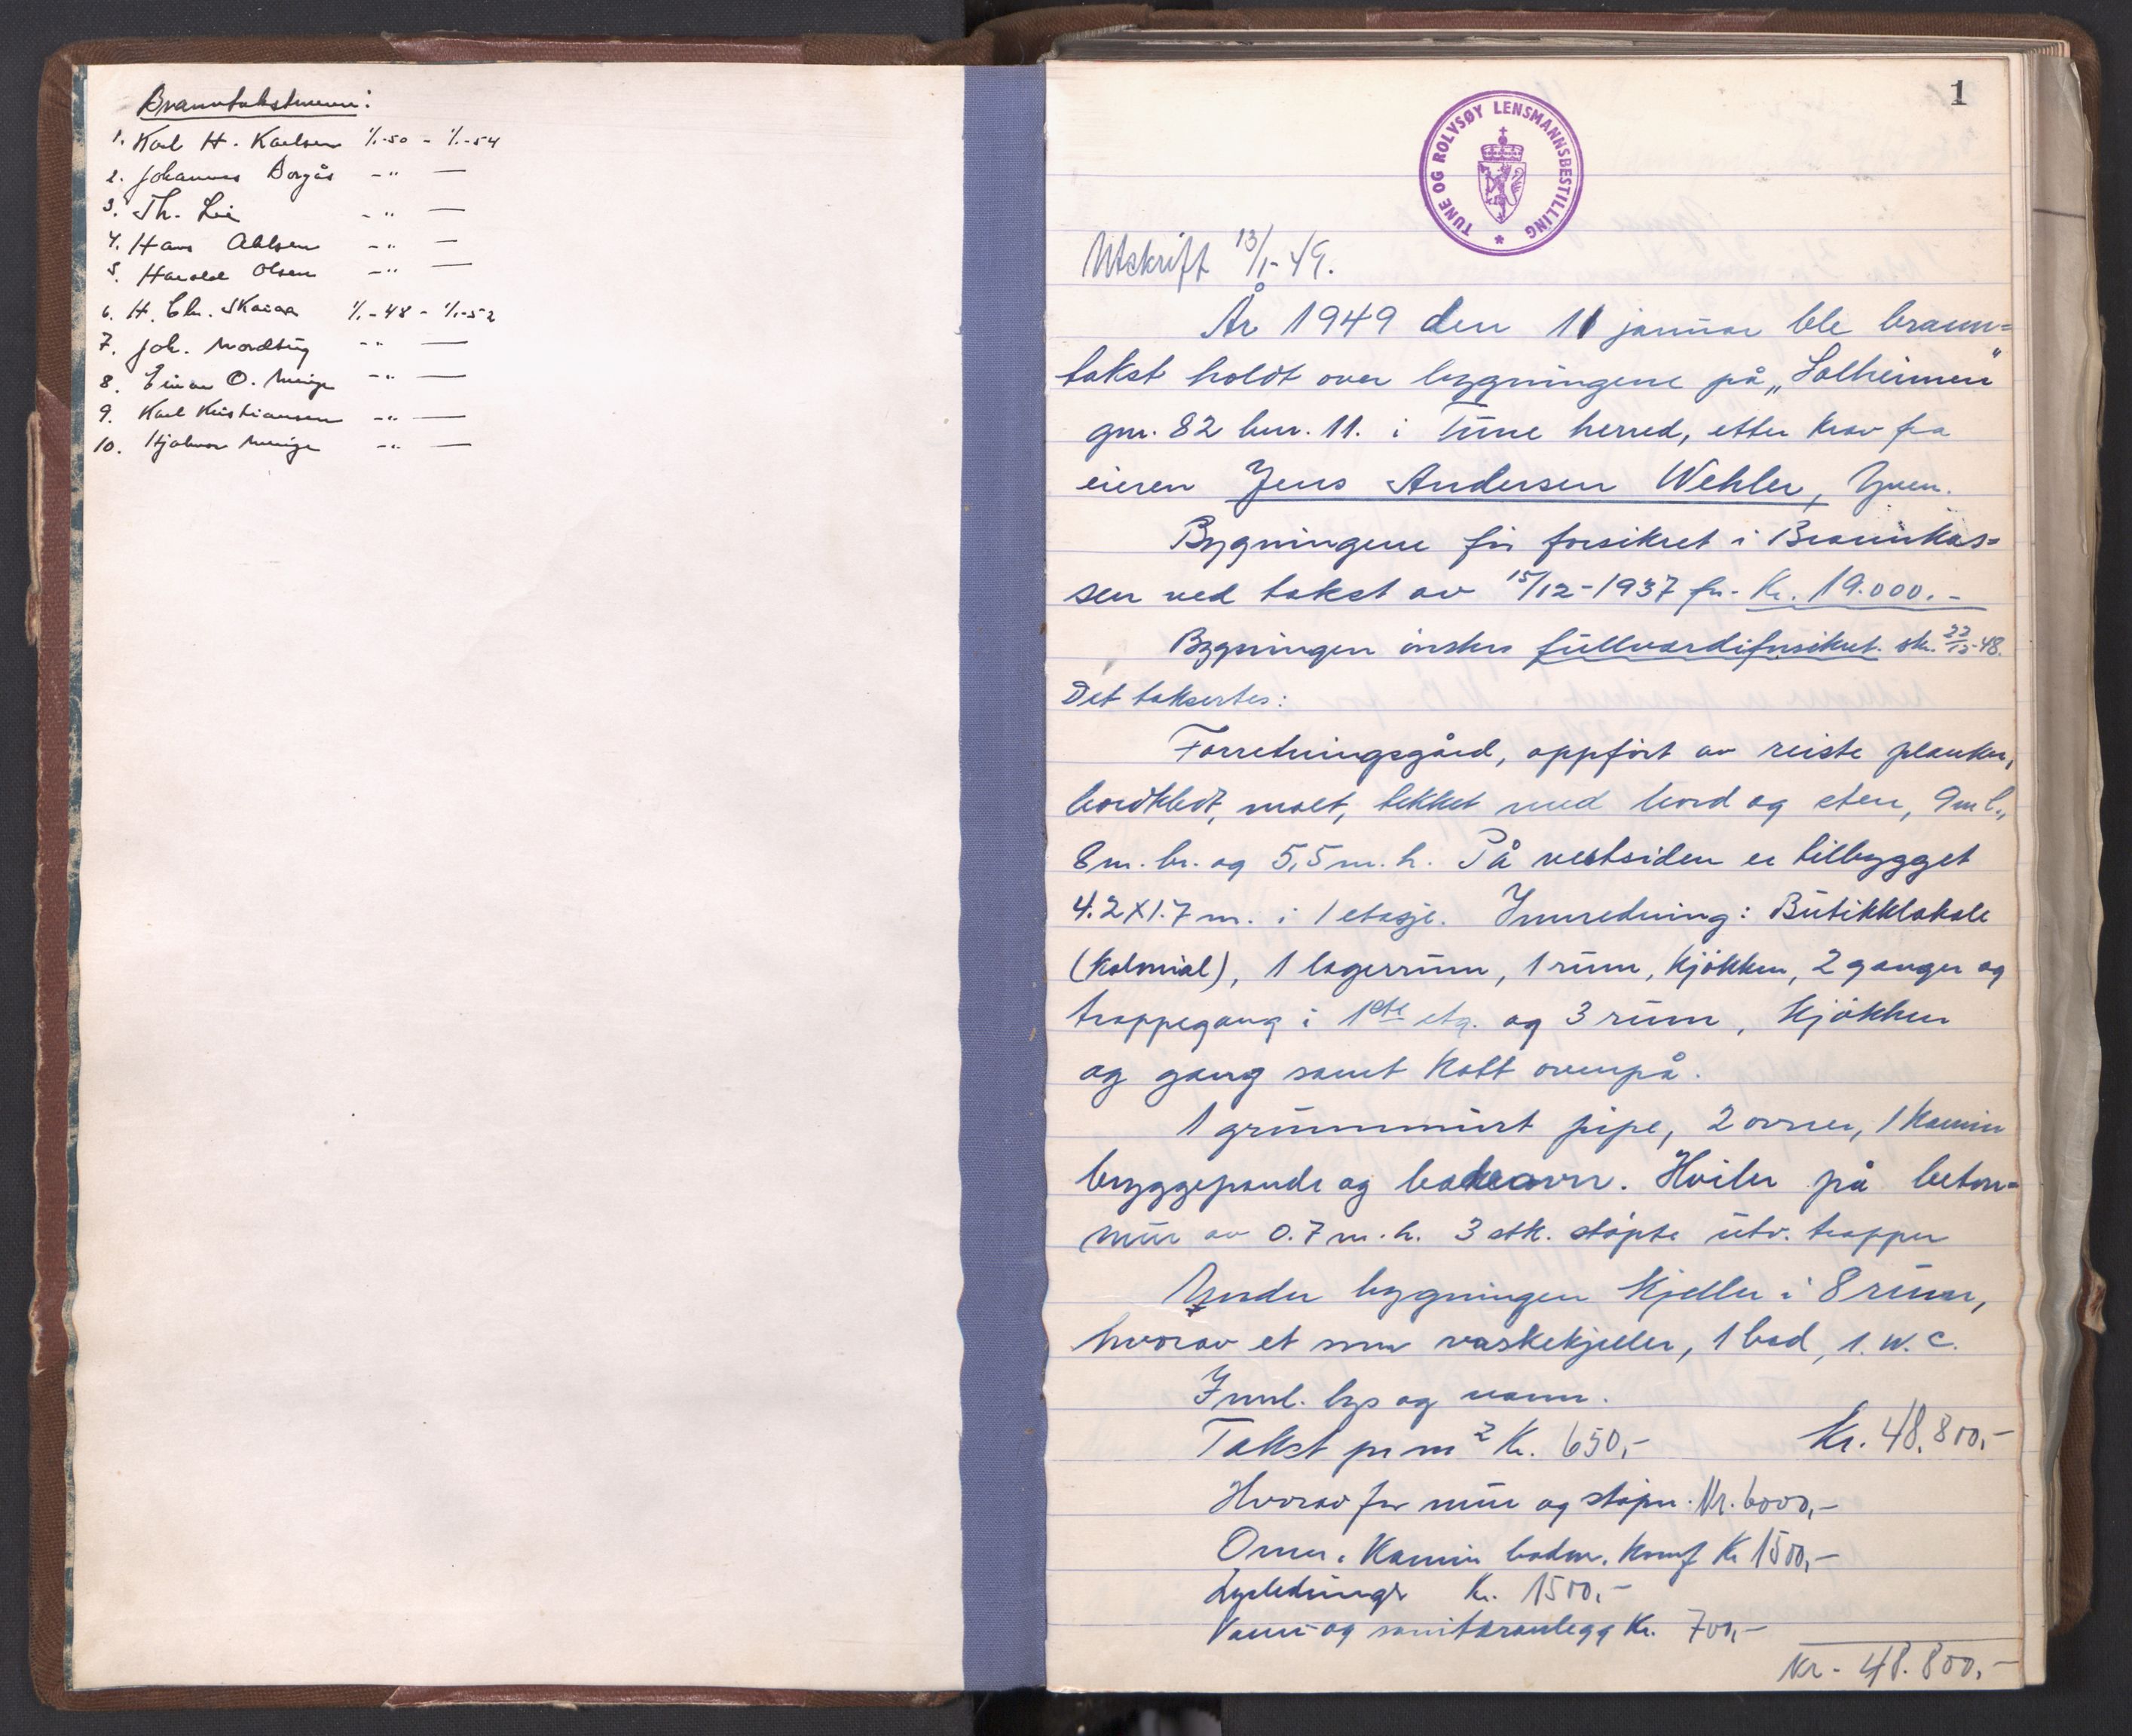 Branntakstmenn:
1. Karl H. Karlsen 1/1-50 - 1/1-54
2. Johannes Borgås -"- —
3. Th. Lie -"- —
4. Hans Ahlsen -"- —
5. Harald Olsen -"- —
6. H. Chr. Skaiaa 1/1-48 - 1/1-52
7. Joh. Nordby -"- —
8. Einar O. Minge -"- —
9. Karl Kristiansen -"- —
10. Hjalmar Minge -"- —
1
TUNE OG ROLVSØY LENSMANNSBESTILLING
Utskrift 13/1-49.
År 1949 den 11 januar ble brann=
takst holdt over bygningene på „Solheimen"
gnr. 82 bnr. 11. i Tune herred, etter krav fra
eieren Jens Andersen Wehler, Yven.
Bygningene før forsikret i Brannkas=
sen ved takst av 15/12-1937 for Kr. 19.000.-
Bygningen ønskes fullverdiforsikret. skr. 22/12-48.
Det taksertes:
Forretningsgård, oppført av reiste planker,
bordkledt, malt, tekket med bord og sten, 9 m l.,
8 m. br. og 5,5 m. h. På vestsiden er tilbygget
4.2 X 1.7 m. i 1 etasje. Innredning: Butikklokale
(Kolonial), 1 lagerrum, 1 rum, kjøkken, 2 ganger og
trappegang i 1ste etg. og 3 rum, kjøkken
og gang samt kott ovenpå.
1 grunnmurt pipe, 2 ovner, 1 kamin
bryggepande og badeovn. Hviler på beton=
mur av 0.7 m. h. 3 stk. støpte utv. trapper
Under bygningen kjeller i 8 rum,
hvorav et som vaskekjeller, 1 bad, 1. W.C.
Innl. lys og vann.
Takst pr m2 Kr. 650,- Kr. 48.800,-
Hvorav for mur og støpn. Kr. 6000,-
Ovner, Kamin badeov. komf Kr 1500,-
Lysledninger Kr. 1500,-
Vann- og sanitæranlegg Kr. 700,-
Kr. 48.800,-